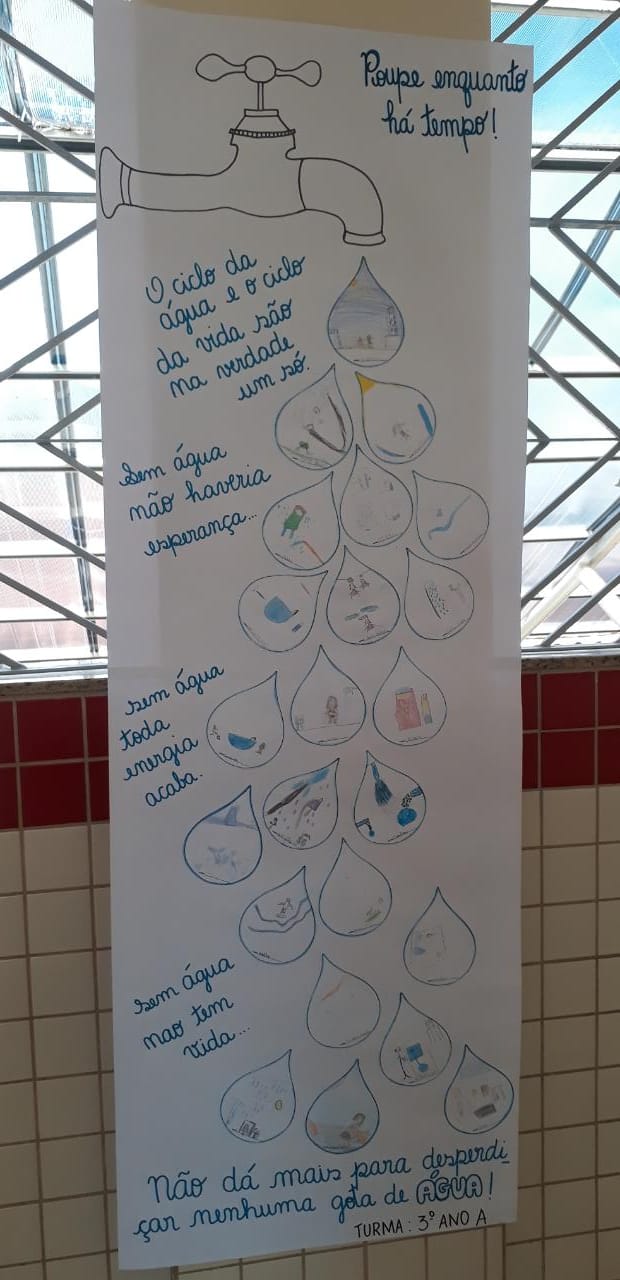 Poupe enquanto
há tempo!
O ciclo da
água e o ciclo
da vida são
na verdade
um só.
Sem água
não haveria
esperança...
sem água
toda
energia
acaba.
Sem água
nao tem
vida...
Não dá mais para desperdi_
çar nenhuma gota de ÁGUA!
TURMA: 3º ANO A